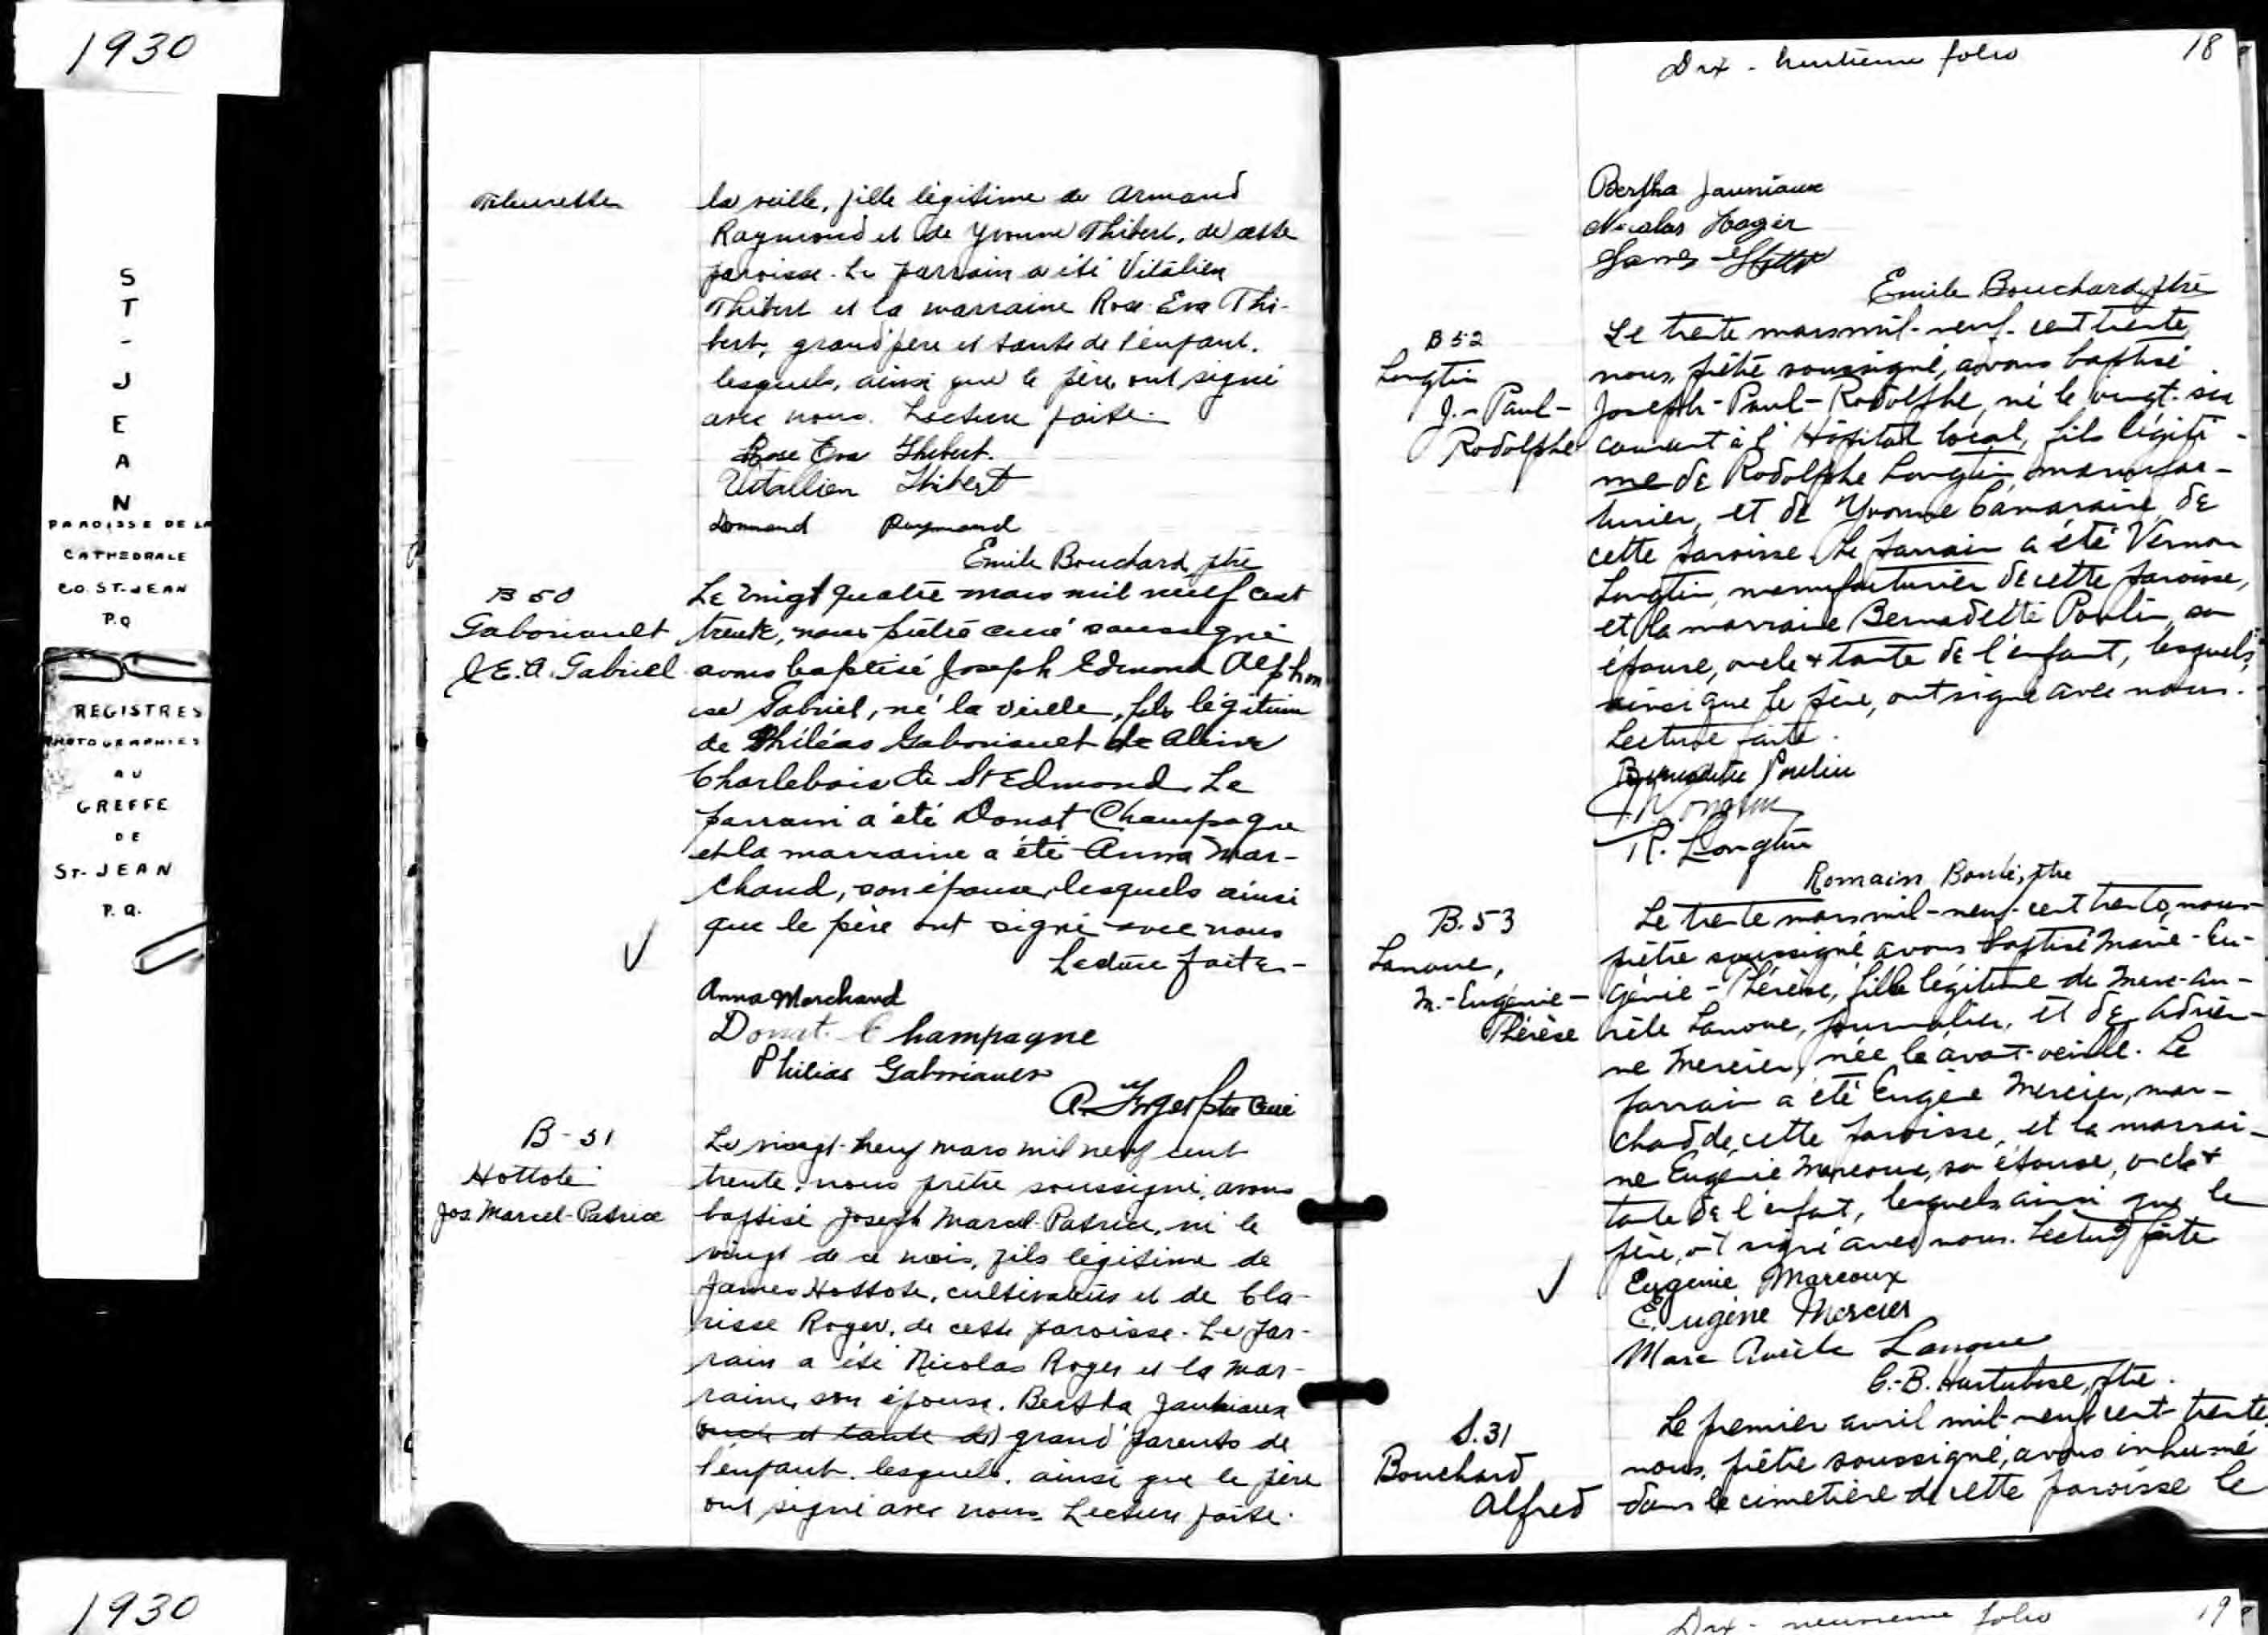 1930
ST-JEAN
PAROISSE DE LA
CATHEDRALE
CO. ST-JEAN
P.Q
REGISTRES
PHOTOGRAPHIES
AU
GREFFE
DE
ST-JEAN
P.Q.
1930
la veille, fille légitime de Armand
Raymond et de Yvonne Thibert, de cette
paroisse. Le parrain a été Vitalien
Thibert et la marraine Rose-Eva Thi-
bert, grand'père et tante de l'enfant.
lesquels, ainsi que le père, ont signé
avec nous. Lecture faite.
Rose Eva Thibert.
Vitallien Thibert
Raymond
Emile Bouchard ptre
B 50
Gaboriault
J E. A. Gabriel
Le vingt quatre mars mil neuf cent
trente, nous prêtre curé soussigné
avons baptisé Joseph Edmond Alphon
se Gabriel, né la veille, fils légitime
de Philéas Gaboriault de Aline
Charlebois de St Edmond. Le
parrain a été Donat Champagne
et la marraine a été Anna Mar-
chand, son épouse, lesquels ainsi
que le père ont signé avec nous
Lecture faite -
Anna Marchand
Donat Champagne
Philias Gaboriault
ptre curé
B-51
Hottote
Jos. Marcel-Patrice
Le vingt-neuf mars mil neuf cent
trente, nous prêtre soussigné, avons
baptisé Joseph Marcel-Patrice, né le
vingt de ce mois, fils légitime de
James Hottote, cultivateur et de Cla-
risse Roger, de cette paroisse. Le par-
rain a été Nicolas Roger et la mar-
raine, son épouse, Bertha Jauniaux
(oncle et tante de) grand'parents de
l'enfant. lesquels, ainsi que le père
ont signé avec nous. Lecture faite.
Dix-huitième folio 18
Bertha Jauniaux
Nicolas Roger
James
Emile Bouchard, ptre
B 52
Longtin
J.-Paul-
Rodolphe
Le trente mars mil-neuf-cent trente,
nous, prêtre soussigné, avons baptisé
Joseph-Paul-Rodolphe, né le vingt-six
courant à l'Hôpital local, fils légiti-
me de Rodolphe Longtin, manufac-
turier, et de Yvonne Camaraire, de
cette paroisse. Le parrain a été Vernon
Longtin, manufacturier de cette paroisse,
et la marraine Bernadette Poulin, son
épouse, oncle & tante de l'enfant, lesquels,
ainsi que le père, ont signé avec nous.
Lecture faite.
Bernadette Poulin
R. Longtin
Romain Boulé, ptre
B. 53
Lanoue,
M.-Eugénie-
Thérèse
Le trente mars mil-neuf-cent trente, nous
prêtre soussigné avons baptisé Marie-Eu-
génie-Thérèse, fille légitime de Marc-Au-
rèle Lanoue, journalier, et de Adrien-
ne Mercier, née l'avant-veille. Le
parrain a été Eugène Mercier, mar-
chand de cette paroisse, et la marrai-
ne Eugénie Marcoux, son épouse, oncle &
tante de l'enfant, lesquels ainsi que le
père, ont signé avec nous. Lecture faite
Eugenie Marcoux
Eugène Mercier
Marc Aurèle Lanoue
C.-B. Hurtubise, ptre.
S. 31
Bouchard
Alfred
Le premier avril mil-neuf cent-trente
nous, prêtre soussigné, avons inhumé
dans le cimetière de cette paroisse le
Dix-neuvième folio 19